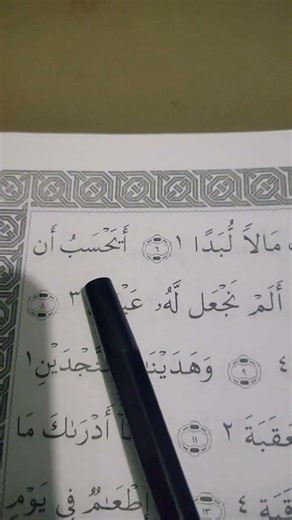 مَالًا لُّبَدًا ١ ۝٦ أَيَحْسَبُ أَن
أَلَمْ نَجْعَل لَّهُۥ ٣ ۝٨
٤ ۝٩ وَهَدَيْنَٰهُ ٱلنَّجْدَيْنِ ١
ٱلْعَقَبَةَ ٢ ۝١١ أَدْرَىٰكَ مَا
٤ ۝١٣ إِطْعَٰمٌ فِى يَوْمٍ